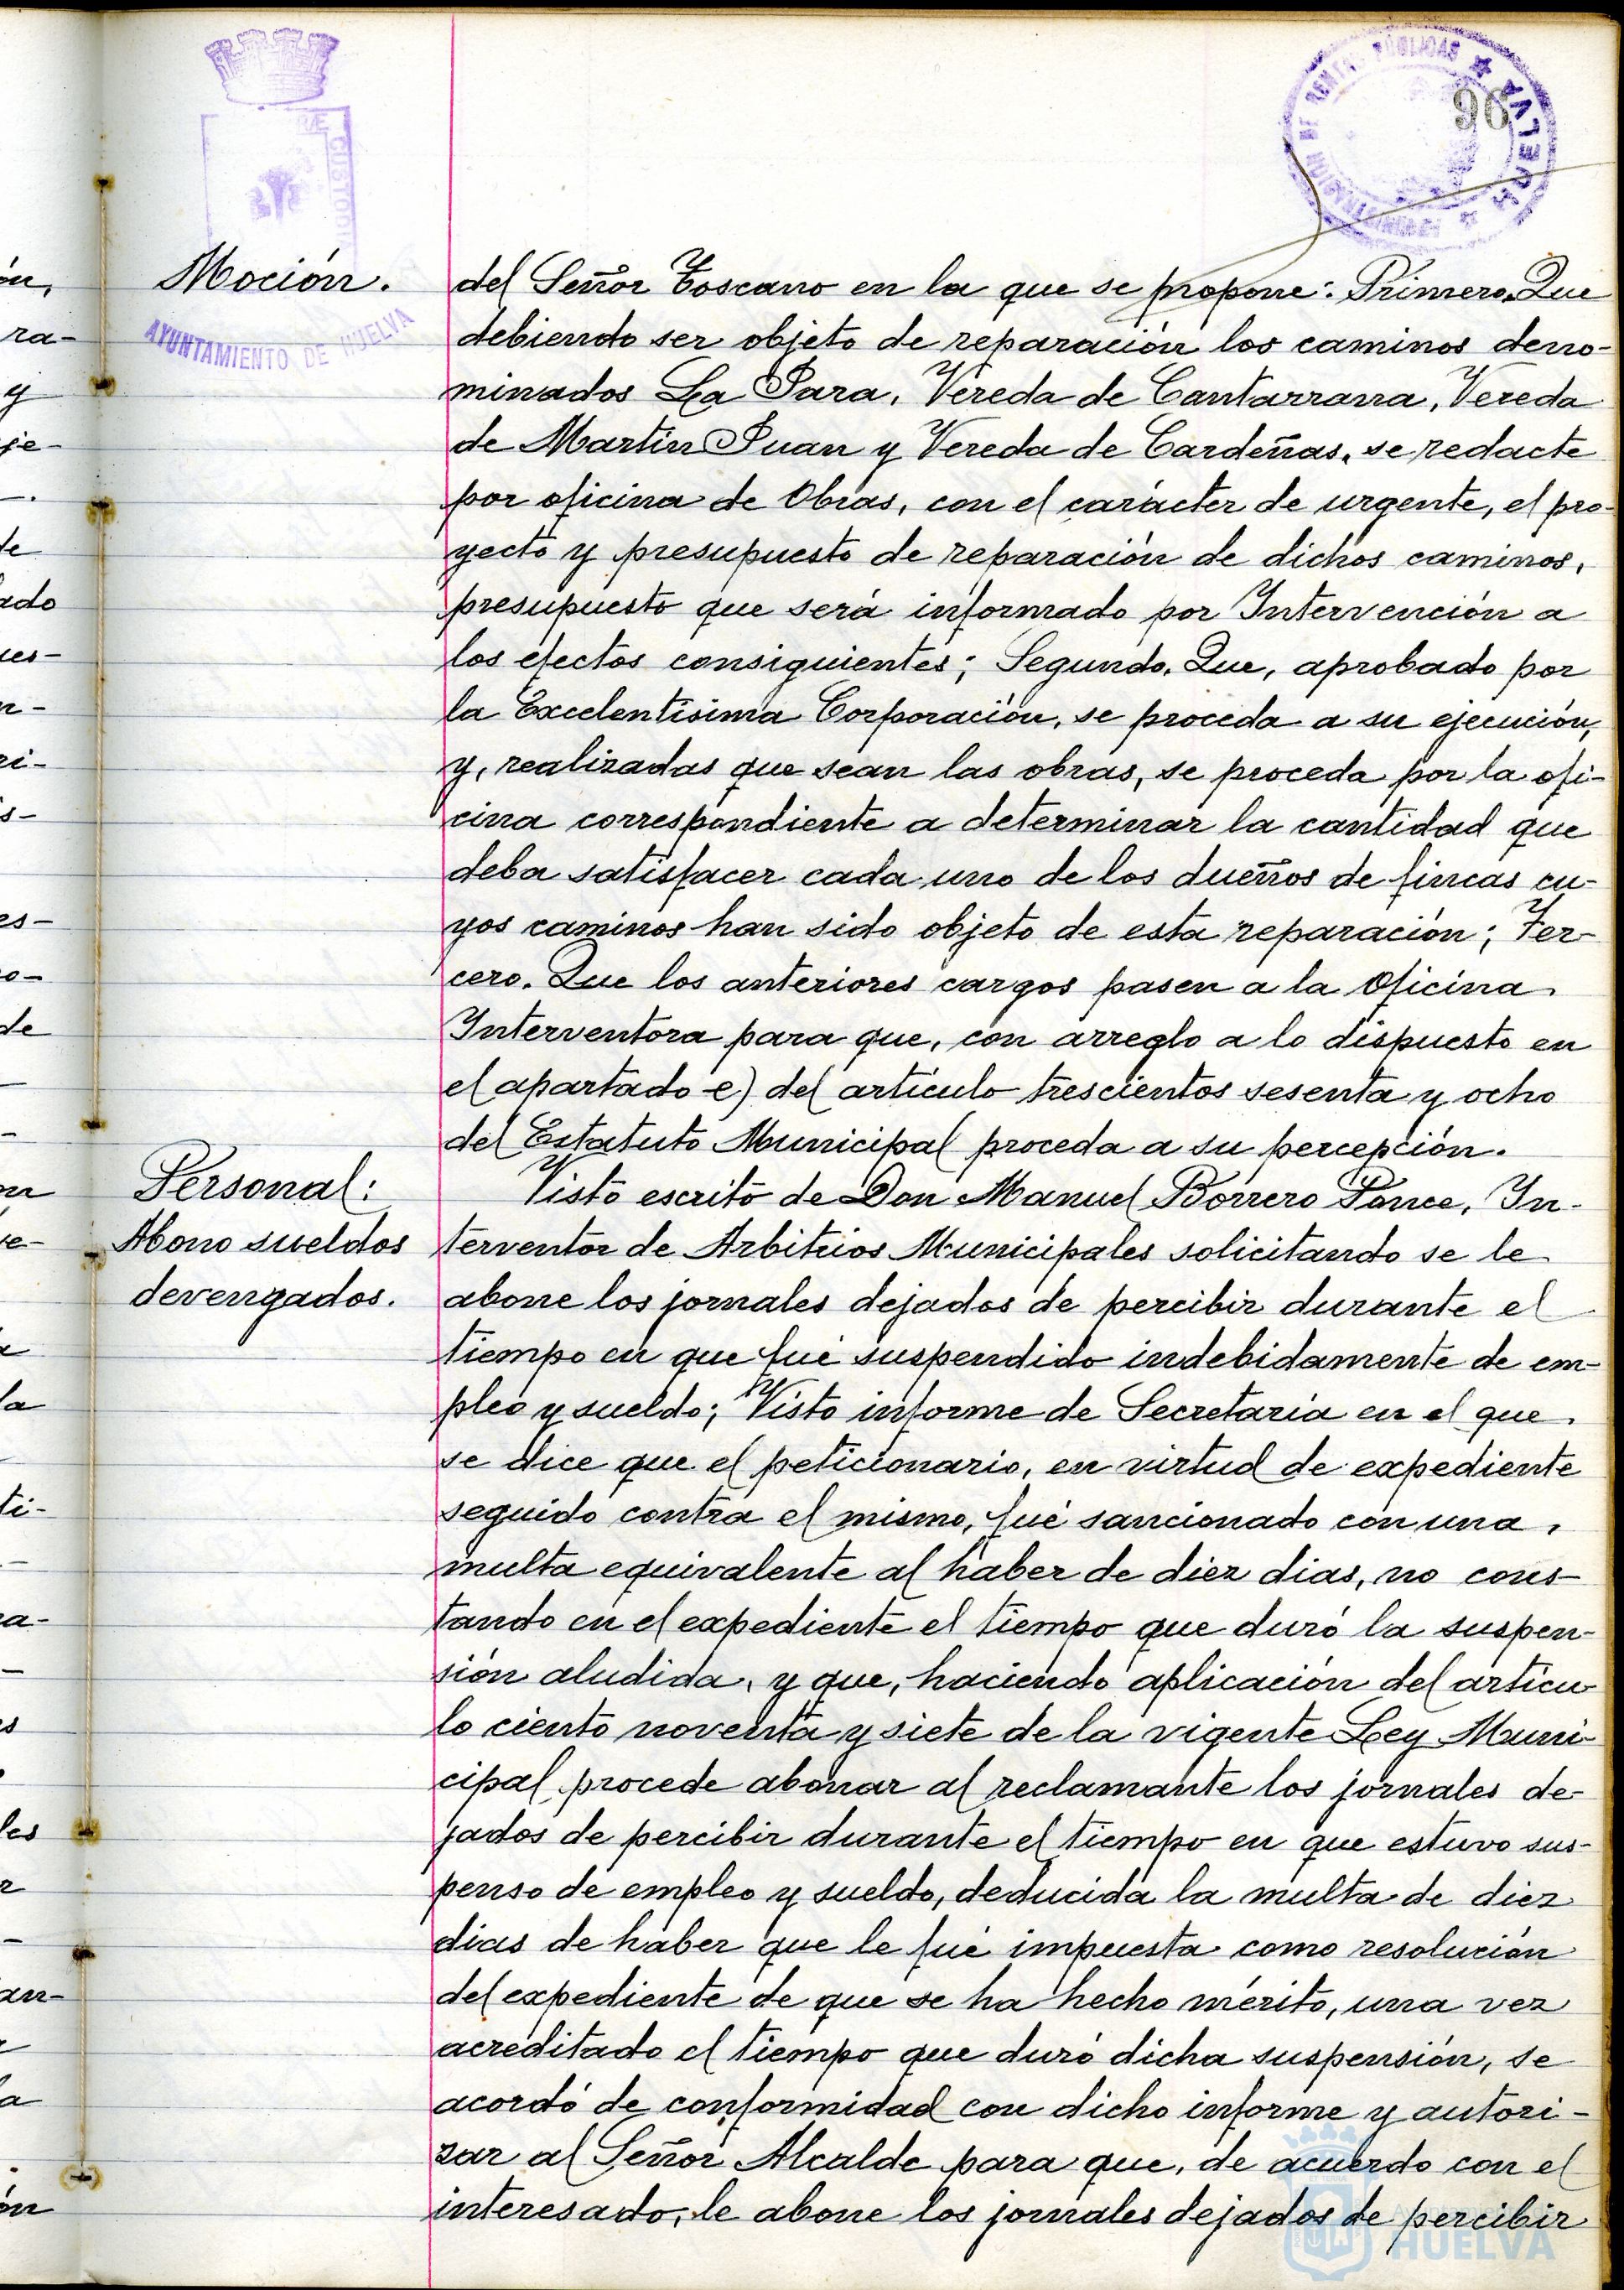 96
Moción.
AYUNTAMIENTO DE HUELVA
del Señor Toscano en la que se propone: Primero. Que
debiendo ser objeto de reparación los caminos deno-
minados La Para, Vereda de Cantarrana, Vereda
de Martin Juan y Vereda de Cardeñas, se redacte
por oficina de Obras, con el carácter de urgente, el pro-
yecto y presupuesto de reparación de dichos caminos,
presupuesto que será informado por Intervención a
los efectos consiguientes; Segundo. Que, aprobado por
la Excelentísima Corporación, se proceda a su ejecución,
y, realizadas que sean las obras, se proceda por la ofi-
cina correspondiente a determinar la cantidad que
deba satisfacer cada uno de los dueños de fincas cu-
yos caminos han sido objeto de esta reparación; Ter-
cero. Que los anteriores cargos pasen a la Oficina
Interventora para que, con arreglo a lo dispuesto en
el apartado e) del artículo trescientos sesenta y ocho
del Estatuto Municipal proceda a su percepción.
Personal:
Abono sueldos
devengados.
Visto escrito de Don Manuel Borrero Ponce, In-
terventor de Arbitrios Municipales solicitando se le
abone los jornales dejados de percibir durante el
tiempo en que fué suspendido indebidamente de em-
pleo y sueldo; Visto informe de Secretaría en el que
se dice que el peticionario, en virtud de expediente
seguido contra el mismo, fué sancionado con una
multa equivalente al haber de diez dias, no cons-
tando en el expediente el tiempo que duró la suspen-
sión aludida, y que, haciendo aplicación del artícu-
lo ciento noventa y siete de la vigente Ley Muni-
cipal, procede abonar al reclamante los jornales de-
jados de percibir durante el tiempo en que estuvo sus-
penso de empleo y sueldo, deducida la multa de diez
dias de haber que le fué impuesta como resolución
del expediente de que se ha hecho mérito, una vez
acreditado el tiempo que duró dicha suspensión, se
acordó de conformidad con dicho informe y autori-
zar al Señor Alcalde para que, de acuerdo con el
interesado, le abone los jornales dejados de percibir
HUELVA